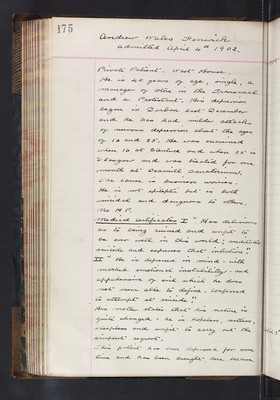 175
Andrew Wales Fenwick
admitted April 4th 1902.
Private Patient. West House.
He is 40 years of age, single, a
manager of store in the Transvaal
and a Protestant. His depression
began in Durban last December
and he has had milder attacks
of nervous depression about the ages
of 16 and 25. He was
when 16 at and when 25 in
Glasgow and was treated for one
month at Sanatorium.
The cause is business worries.
He is not epileptic but is both
suicidal and dangerous to others.
No H.P.
Medical Certificates I "Has delusions
as to being ruined and unfit to
be ever well in this world; meditates
suicide and expresses that intention."
II "He is depressed in mind - with
marked emotional instability - and
apprehensive of evil which he does
not seem able to define. Confessed
to attempt at suicide."
His mother states that his nature is
quite changed - he is hopeless, restless,
sleepless and unfit to carry out the
simplest request.
This patient has been depressed for some
time and has been brought here